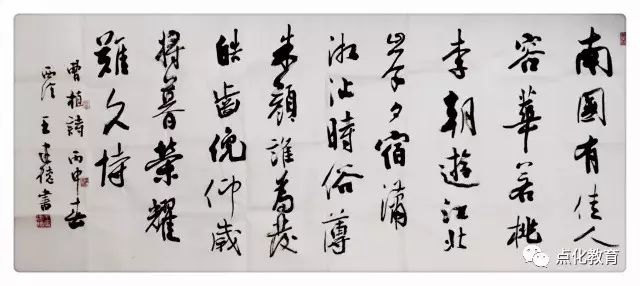 南國有佳人
容華若桃
李朝遊江北
岸夕宿瀟
湘沚時俗薄
朱顏誰為發
皓齒俛仰歲
將暮榮耀
難久恃
曹植詩 丙申春
王 書
点化教育